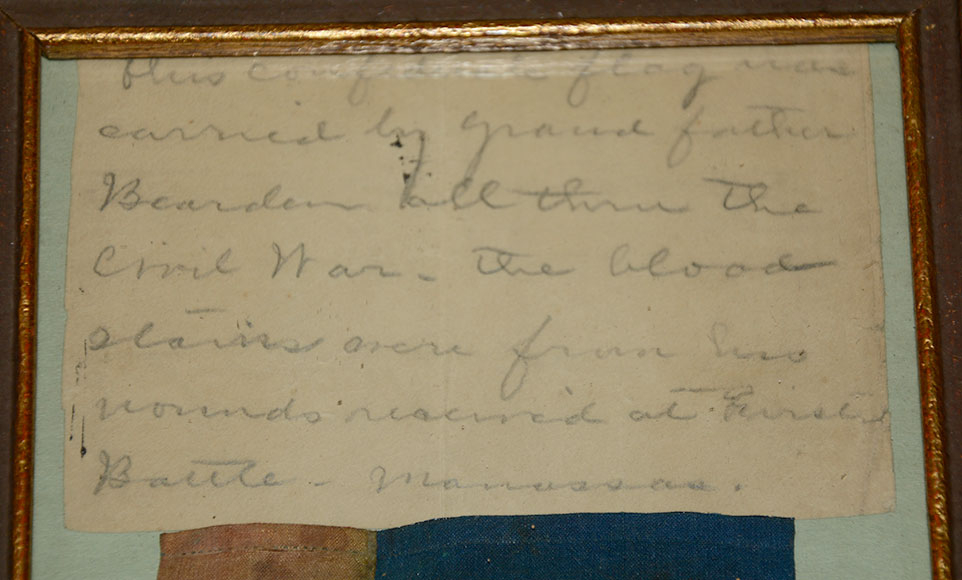 this confederate flag was
carried by grand father
Bearden all thru the
Civil War - the blood
stains were from his
wounds received at First
Battle - Manassas.